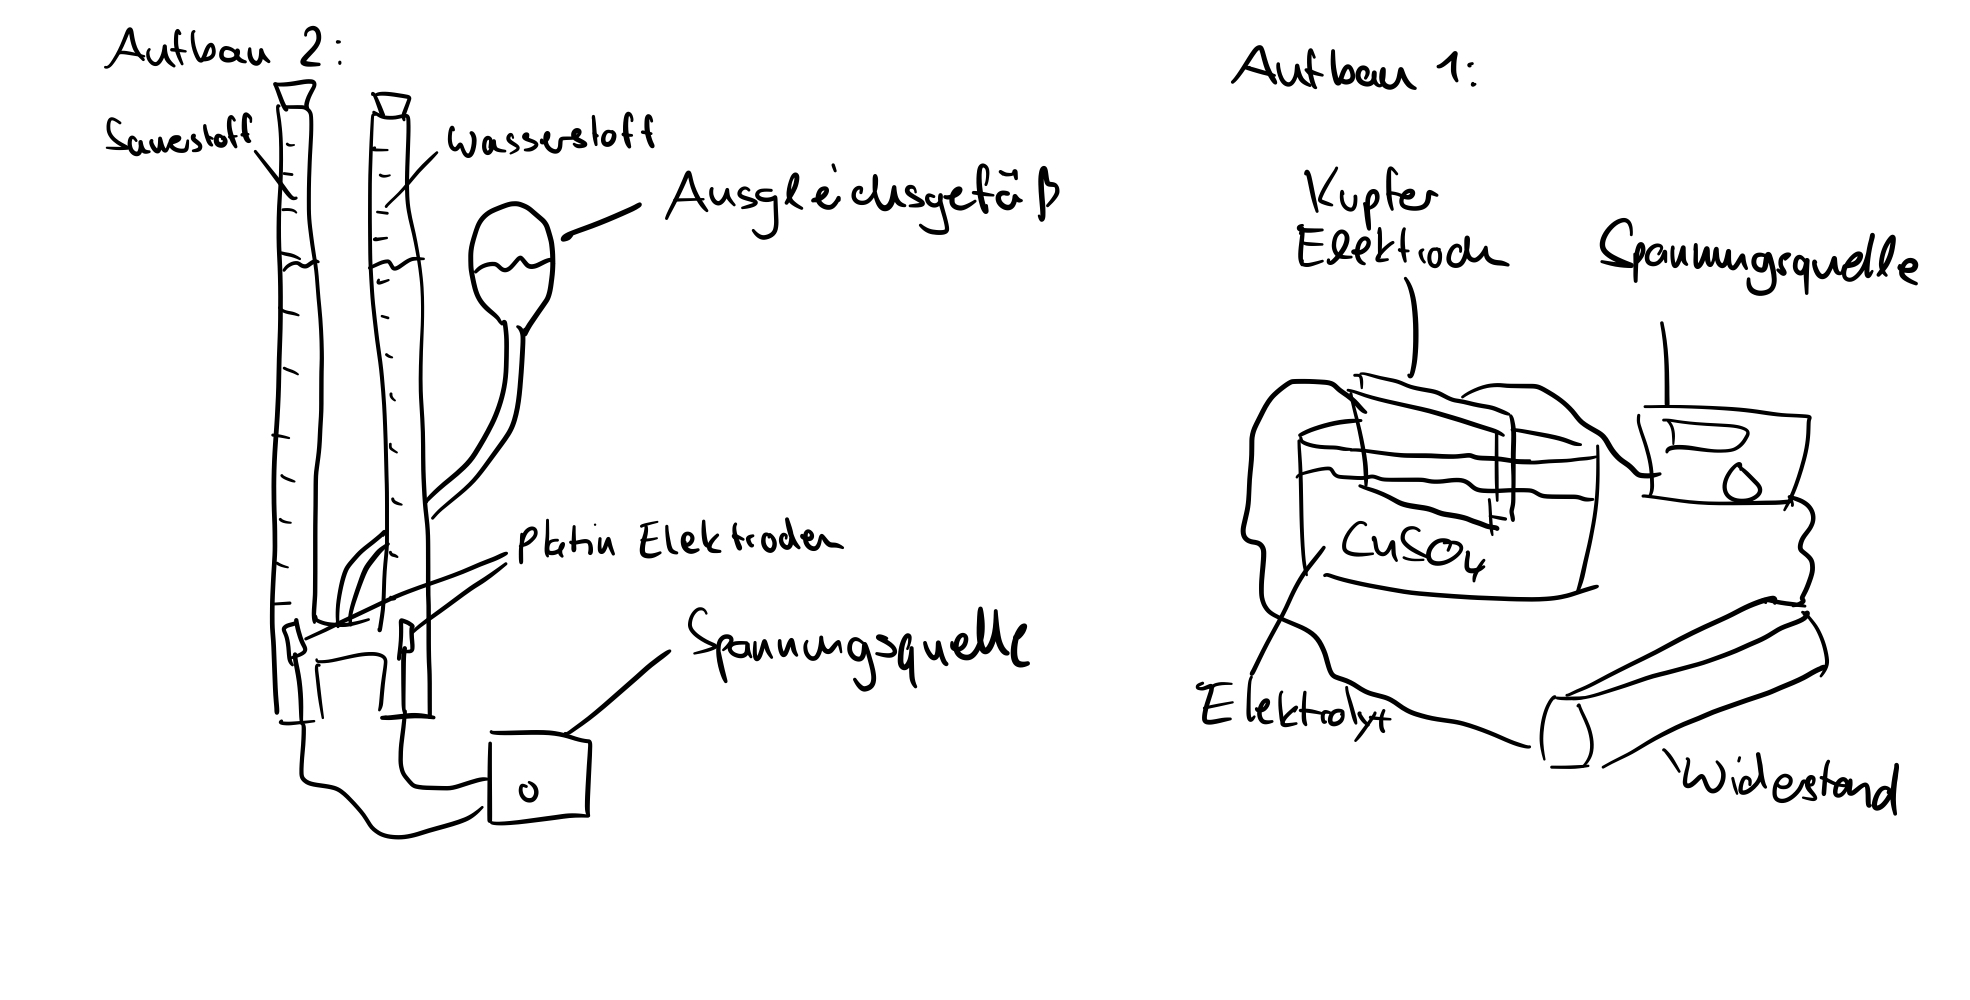 Aufbau 2:
Sauerstoff
Wasserstoff
Ausgleichsgefäß
Platin Elektroden
Spannungsquelle
O
Aufbau 1:
Kupfer
Elektroden
Spannungsquelle
CuSO4
Elektrolyt
Widerstand